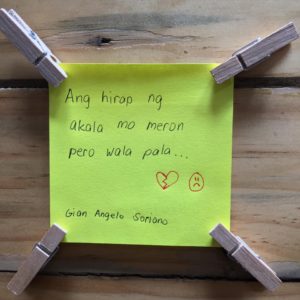 Ang hirap ng
akala mo meron
pero wala pala...
Gian Angelo Soriano